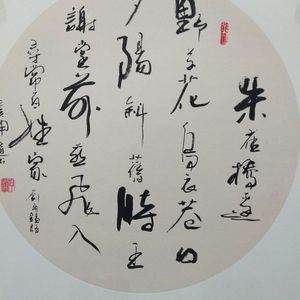 朱雀橋邊
野草花烏衣巷口
夕陽斜舊時王
謝堂前燕飛入
尋常百姓家 劉禹錫詩